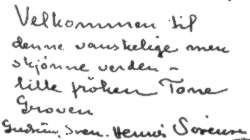 Velkommen til
denne vanskelige men
skjönne verden -
lille fröken Tone
Groven
Gudrun, Sven. Hennis Sörensen